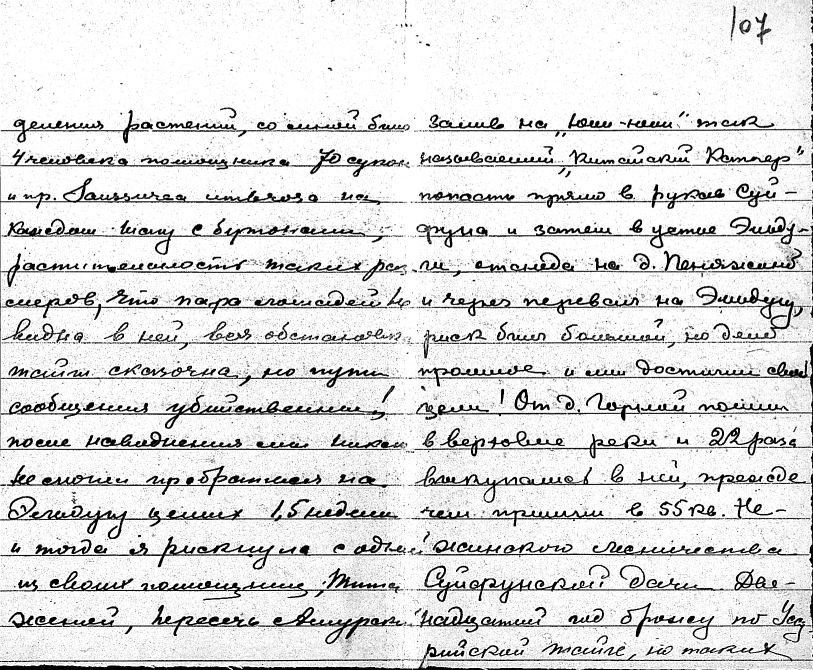 107
деления растений, со мной было
4 человека помощника 70 сукон
и пр. на
каждом шагу с бутонами,
растительность таких раз
меров, что пара лошадей не
видна в ней, вся обстановка
тайги сказочна, но пути
сообщения убийственны!
после наводнения мы никак
не могли пробраться на
целых 1,5 недели
и тогда я рискнула с одной
из своих помощниц,
женей, пересечь Амурский
залив на „Юли-юли" так
называемый „Китайский Катер"
попасть прямо в рукав Суй-
фуна и затем в устье Эльду-
ги, оттуда на д. Пеняжино
и через перевал на Эльдугу,
риск был большой, но дело
прошлое и мы достигли своей
цели! От д. Горной пошли
в верховье реки и 22 раза
выкупались в ней, прежде
чем пришли в 55 кв. Не-
жинского лесничества
Суйфунской дачи. Две-
надцатый год брожу по Уссу-
рийской тайге, но таких